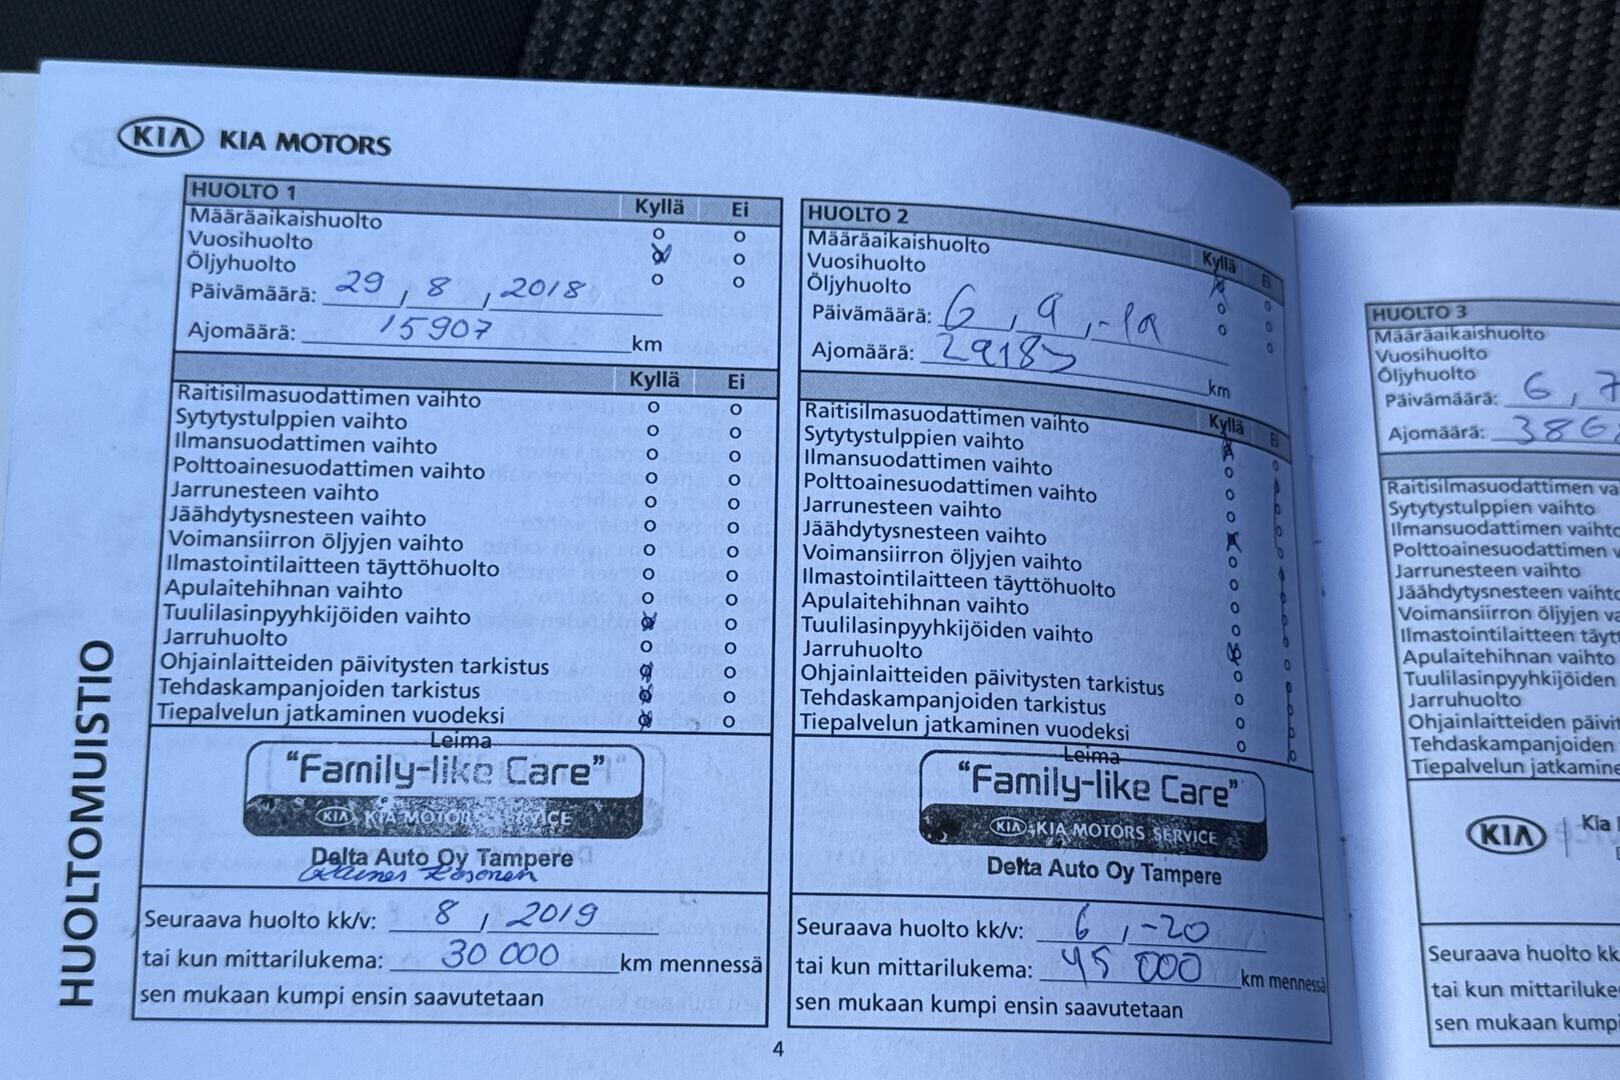 KIA KIA MOTORS
HUOLTOMUISTIO
HUOLTO 1
Kyllä Ei
Määräaikaishuolto
Vuosihuolto
Öljyhuolto
Päivämäärä: 29, 8, 2018
Ajomäärä: 15907 km
Kyllä Ei
Raitisilmasuodattimen vaihto
Sytytystulppien vaihto
Ilmansuodattimen vaihto
Polttoainesuodattimen vaihto
Jarrunesteen vaihto
Jäähdytysnesteen vaihto
Voimansiirron öljyjen vaihto
Ilmastointilaitteen täyttöhuolto
Apulaitehihnan vaihto
Tuulilasinpyyhkijöiden vaihto
Jarruhuolto
Ohjainlaitteiden päivitysten tarkistus
Tehdaskampanjoiden tarkistus
Tiepalvelun jatkaminen vuodeksi
Leima
"Family-like Care"
KIA KIA MOTORS SERVICE
Delta Auto Oy Tampere
Seuraava huolto kk/v: 8, 2019
tai kun mittarilukema: 30 000 km mennessä
sen mukaan kumpi ensin saavutetaan
HUOLTO 2
Kyllä Ei
Määräaikaishuolto
Vuosihuolto
Öljyhuolto
Päivämäärä: 6, 9, -19
Ajomäärä: 29185 km
Kyllä Ei
Raitisilmasuodattimen vaihto
Sytytystulppien vaihto
Ilmansuodattimen vaihto
Polttoainesuodattimen vaihto
Jarrunesteen vaihto
Jäähdytysnesteen vaihto
Voimansiirron öljyjen vaihto
Ilmastointilaitteen täyttöhuolto
Apulaitehihnan vaihto
Tuulilasinpyyhkijöiden vaihto
Jarruhuolto
Ohjainlaitteiden päivitysten tarkistus
Tehdaskampanjoiden tarkistus
Tiepalvelun jatkaminen vuodeksi
Leima
"Family-like Care"
KIA KIA MOTORS SERVICE
Delta Auto Oy Tampere
Seuraava huolto kk/v: 6, -20
tai kun mittarilukema: 45 000 km mennessä
sen mukaan kumpi ensin saavutetaan
4
HUOLTO 3
Määräaikaishuolto
Vuosihuolto
Öljyhuolto
Päivämäärä: 6, 7
Ajomäärä: 386
Raitisilmasuodattimen va
Sytytystulppien vaihto
Ilmansuodattimen vaihto
Polttoainesuodattimen v
Jarrunesteen vaihto
Jäähdytysnesteen vaihto
Voimansiirron öljyjen va
Ilmastointilaitteen täytt
Apulaitehihnan vaihto
Tuulilasinpyyhkijöiden
Jarruhuolto
Ohjainlaitteiden päivit
Tehdaskampanjoiden
Tiepalvelun jatkamine
KIA Kia
Seuraava huolto kk
tai kun mittariluke
sen mukaan kumpi